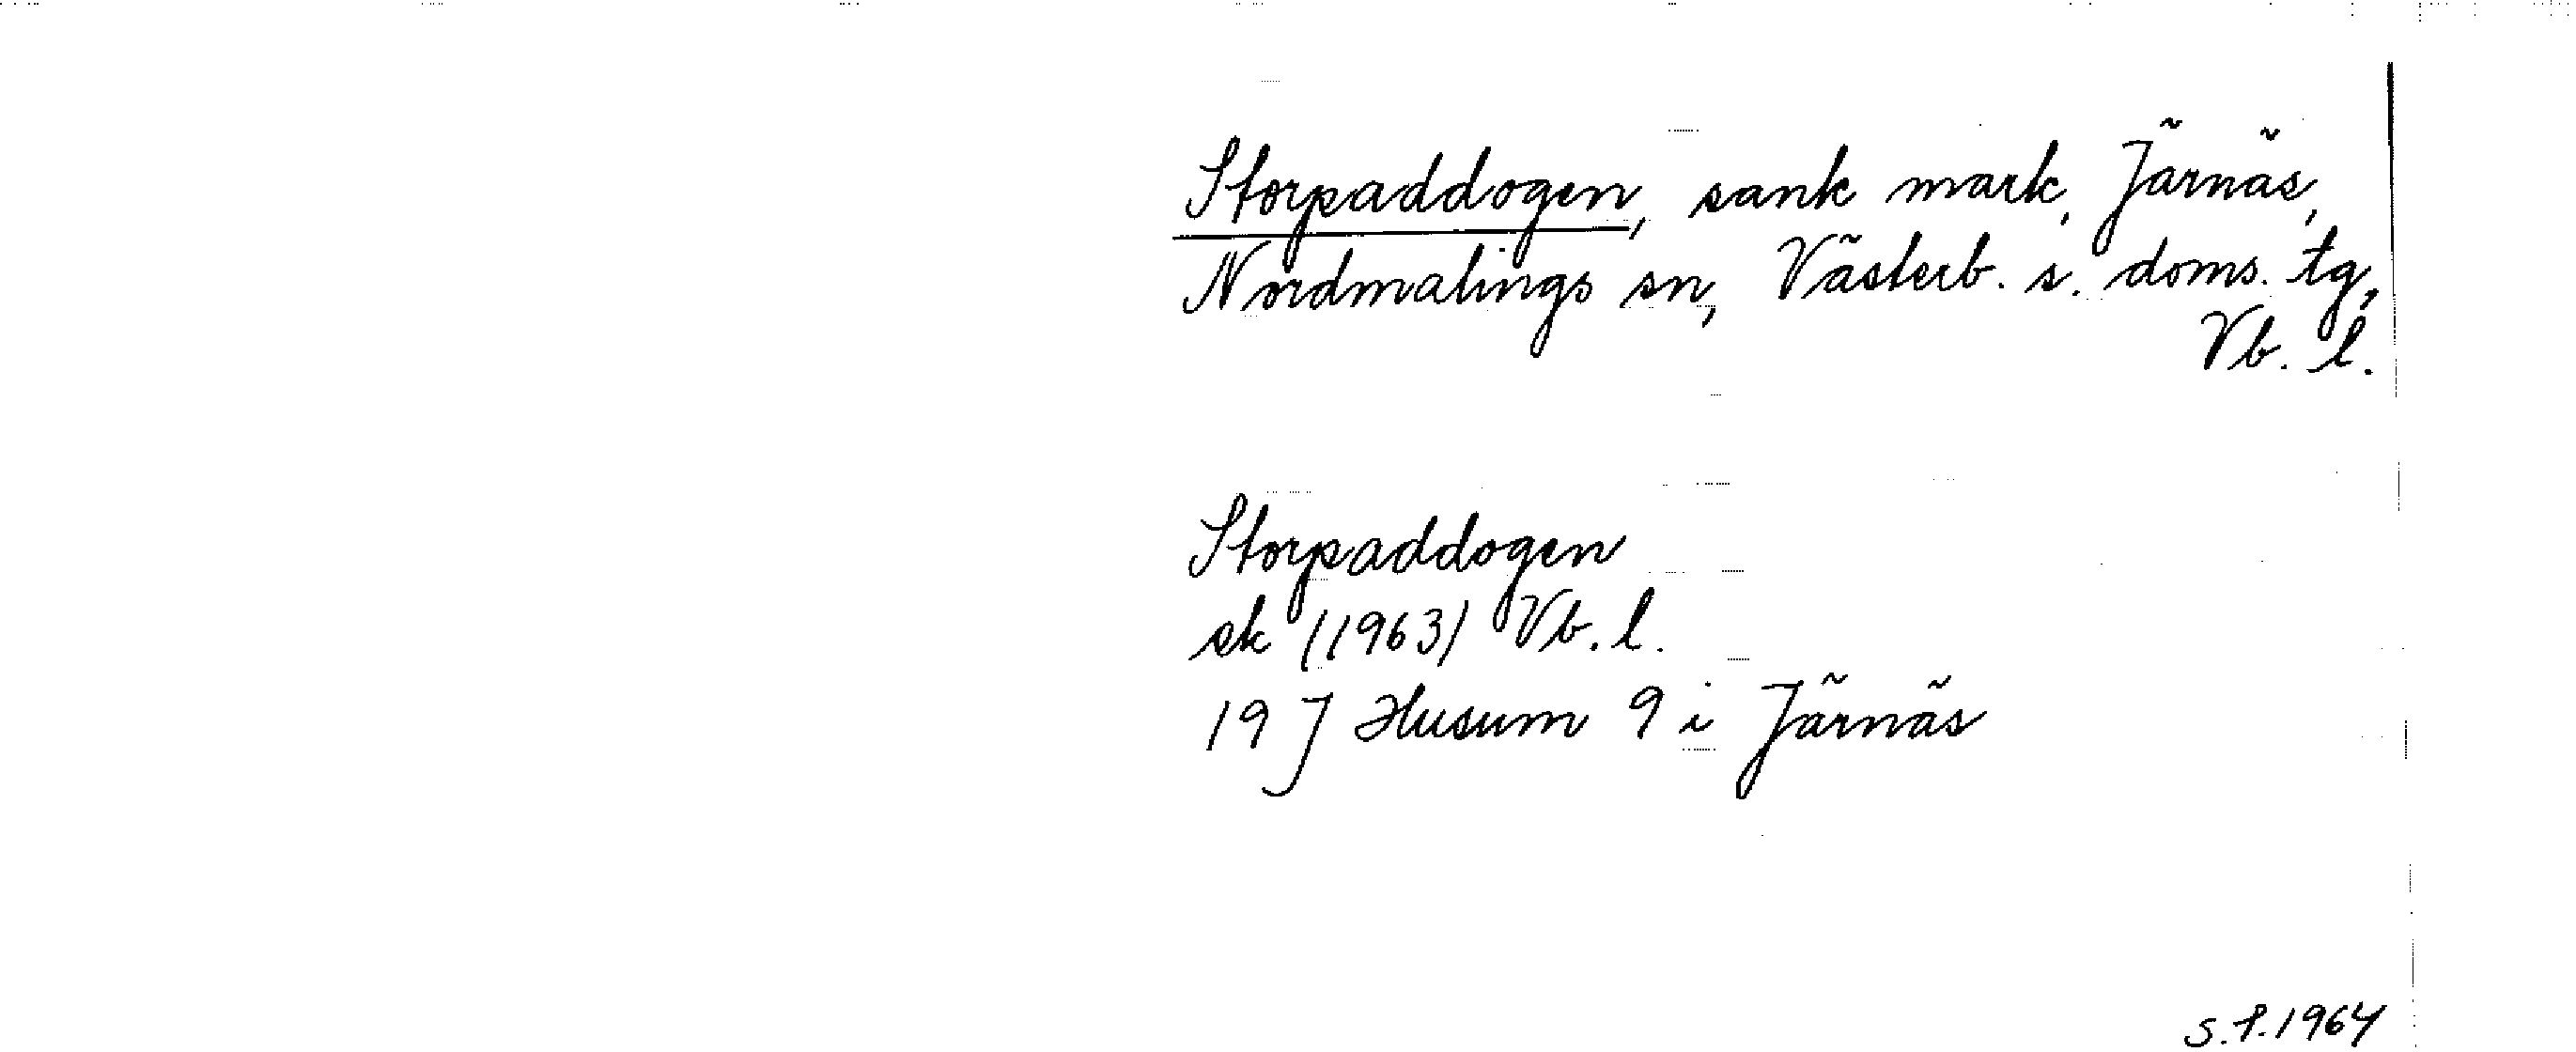 Storpaddogen, sank mark, Järnäs,
Nordmalings sn, Västerb. s. doms. tg,
Vb. l.
Storpaddogen
sk (1963) Vb. l.
19 J Husum 9 i Järnäs
S.P. 1964